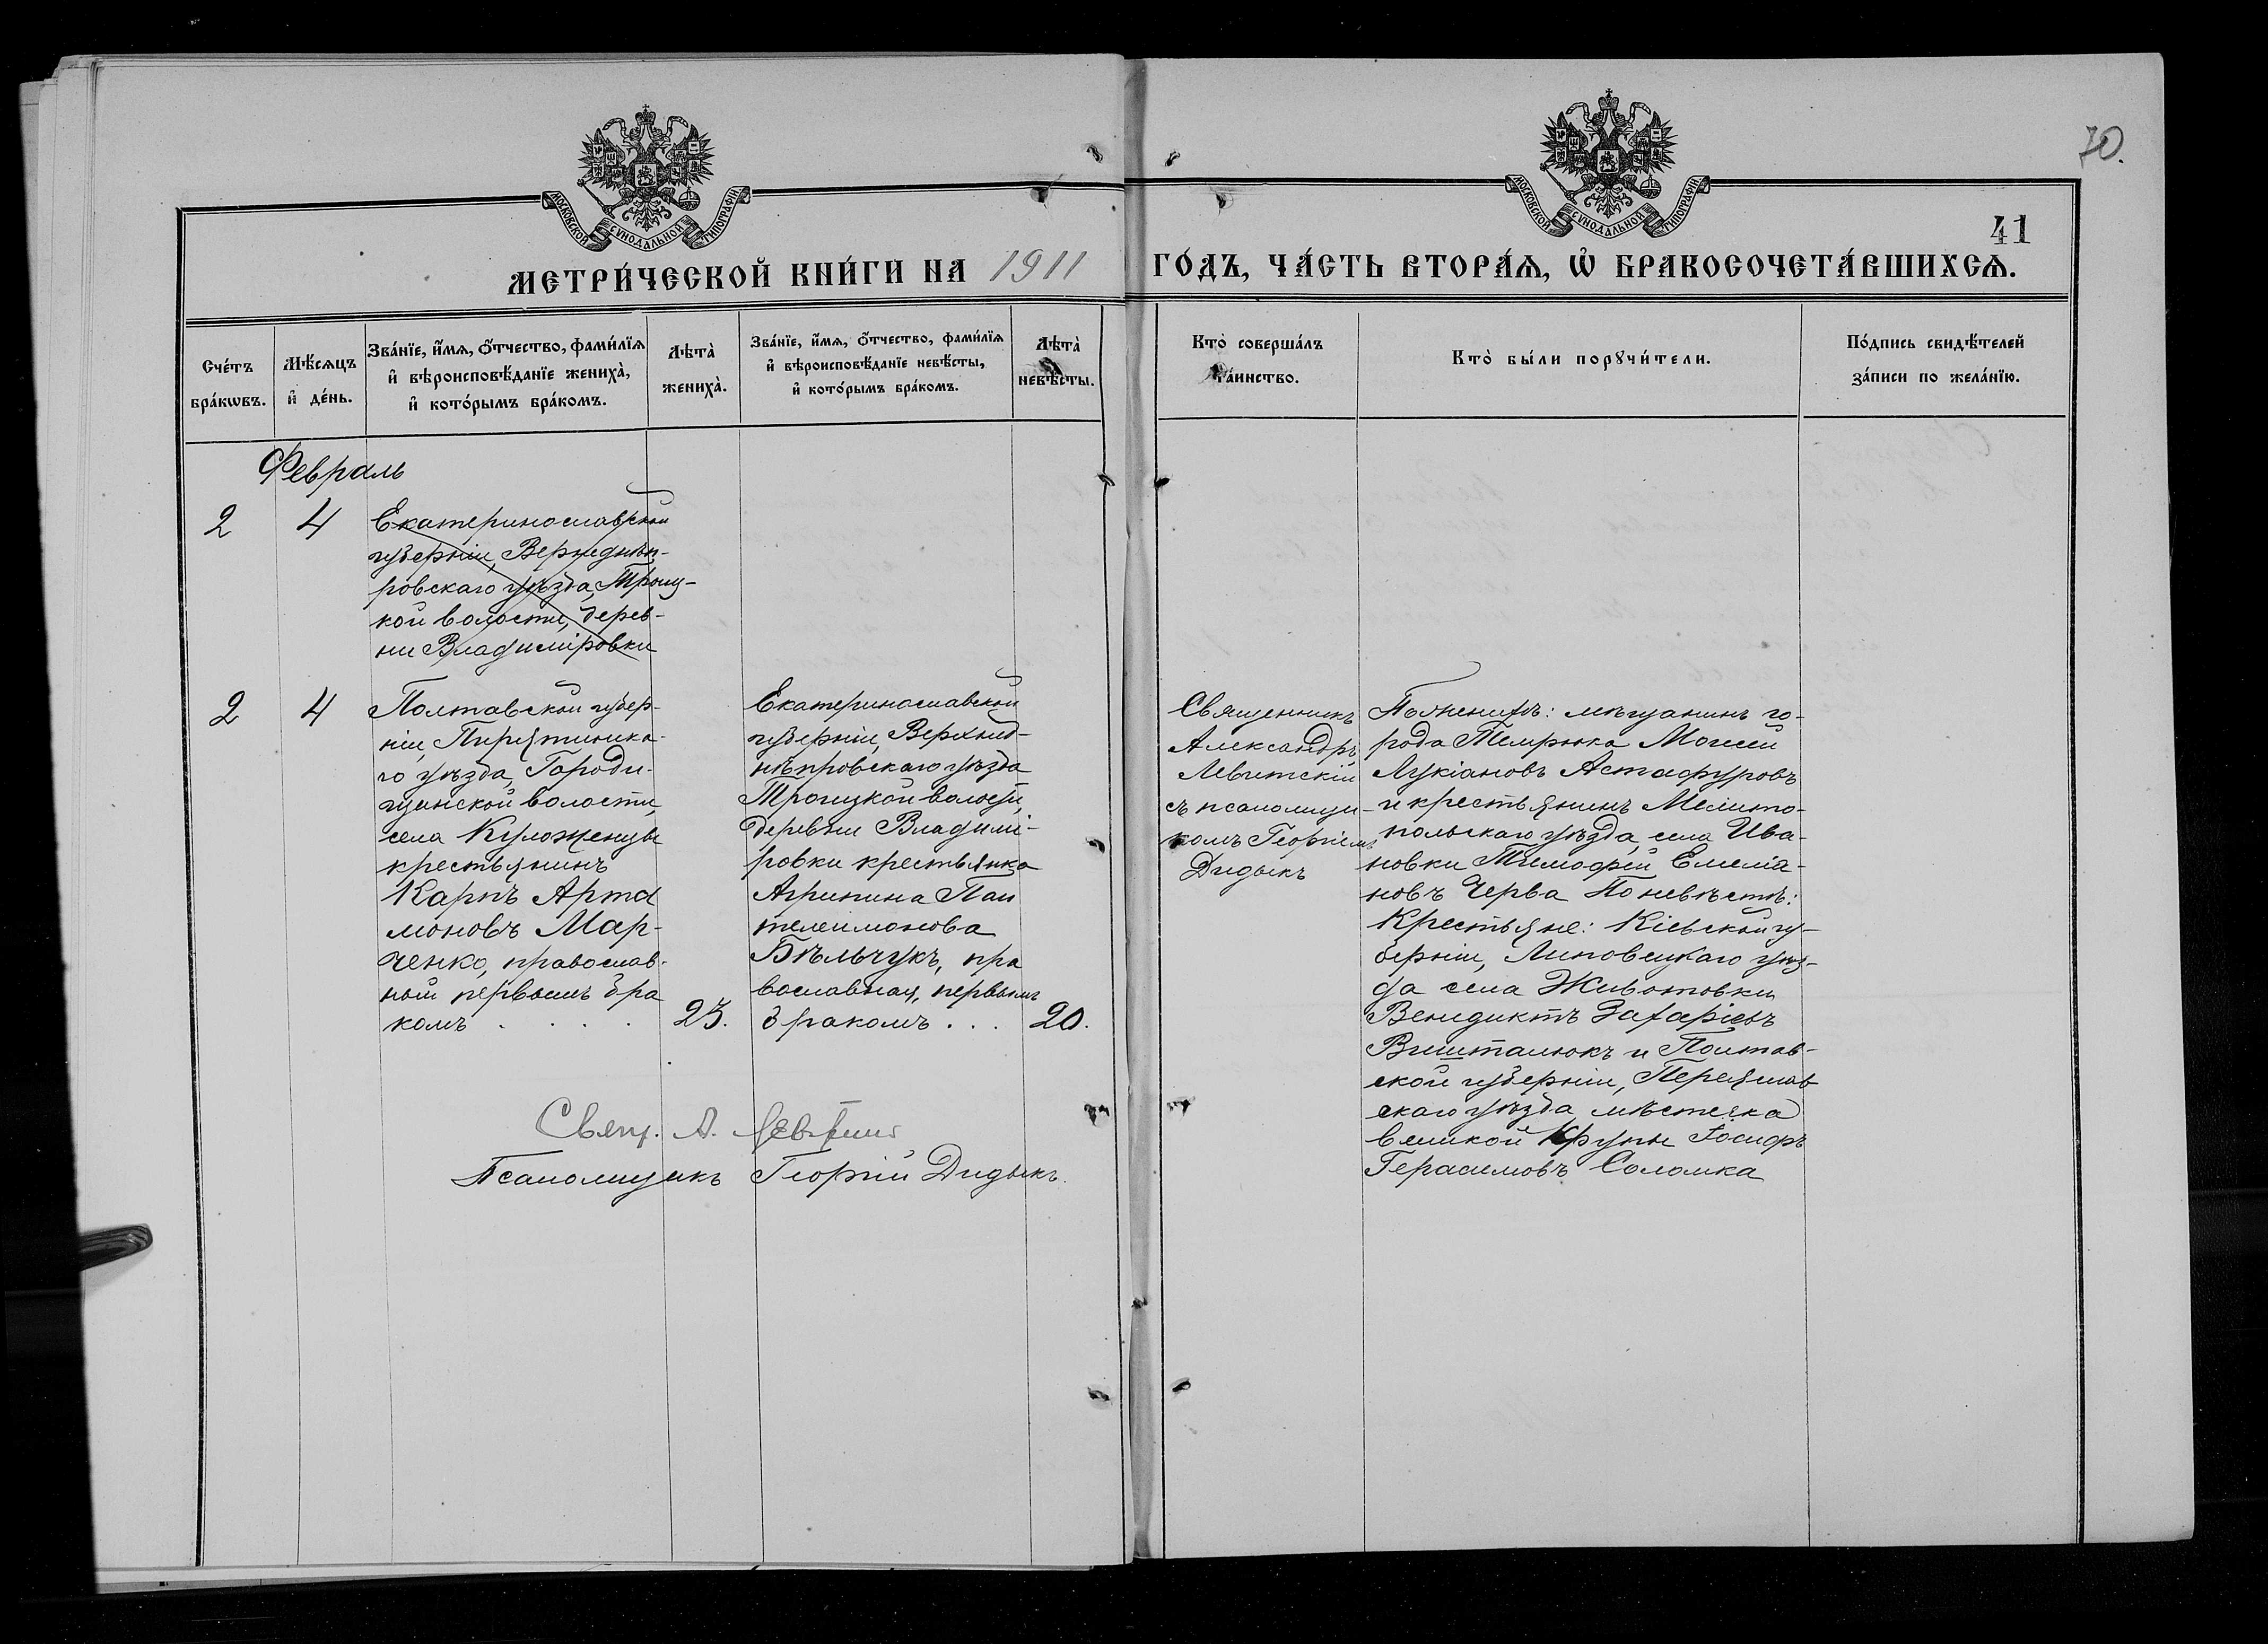 70.
41
МОСКОВСКОЙ СУНОДАЛЬНОЙ ТИПОГРАФІИ
МОСКОВСКОЙ СУНОДАЛЬНОЙ ТИПОГРАФІИ
МЕТРИ́ЧЕСКОЙ КНИ́ГИ НА 1911 ГО́ДЪ, ЧА́СТЬ ВТОРА́Ѧ, Ѽ БРАКОСОЧЕТА́ВШИХСѦ.
Сче́тъ
бра́кѡвъ.
Мѣ́сѧцъ
и҆ де́нь.
Зва́нїе, и҆́мѧ, ѻ҆́тчество, фами́лїѧ
и҆ вѣроисповѣ́данїе жениха̀,
и҆ кото́рымъ бра́комъ.
Лѣта̀
жениха̀.
Зва́нїе, и҆́мѧ, ѻ҆́тчество, фами́лїѧ
и҆ вѣроисповѣ́данїе невѣ́сты,
и҆ кото́рымъ бра́комъ.
Лѣта̀
невѣ́сты.
Кто̀ соверша́лъ
та́инство.
Кто̀ бы́ли порꙋчи́тели.
По́дпись свидѣ́телей
за́писи по жела́нїю.
Февраль
2
4
Екатеринославской
губерніи, Верхнеднѣп-
ровскаго уѣзда, Троиц-
кой волости, дерев-
ни Владиміровки
2
4
Полтавской губер-
ніи, Пирятинска-
го уѣзда, Городи-
щанской волости,
села Куложенцы
крестьянинъ
Карпъ Арта
моновъ Мар-
ченко, православ-
ный первымъ бра
комъ . . . .
23.
Екатеринославской
губерніи, Верхнед-
нѣпровскаго уѣзда
Троицкой волости,
деревни Владимі-
ровки крестьянка
Агрипина Пан
телеимонова
Бѣльчукъ, пра
вославная, первымъ
бракомъ . . .
20.
Священникъ
Александръ
Левитскій
съ псаломщи-
комъ Георгіемъ
Дидыкъ
По женихѣ: мѣщанинъ го-
рода Темрюка Моисей
Лукіановъ Астафуровъ
и крестьянинъ Мелито-
польскаго уѣзда, села Ива-
новки Тимофей Емеліа-
новъ Черва По невѣстѣ:
Крестьяне: Кіевской гу-
берніи, Липовецкаго уѣз-
да села Животовки
Венедиктъ Захаріевъ
Вишталюкъ и Полтав-
ской губерніи, Переяслав
скаго уѣзда мѣстечка
великой Кручи Іосифъ
Герасимовъ Соломка
Свящ. А. Левитскій
Псаломщикъ Георгій Дидыкъ.